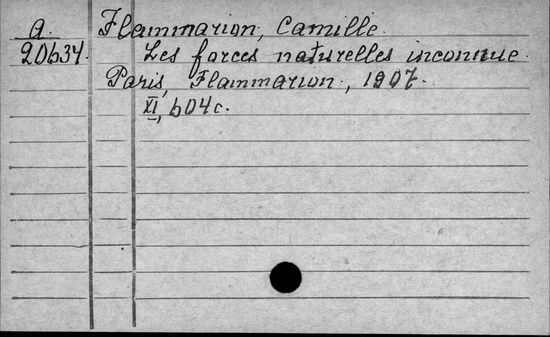 A
20634.
Flammarion, Camille.
Les forces naturelles inconnue.
Paris, Flammarion, 1907.
XI, 604 c.